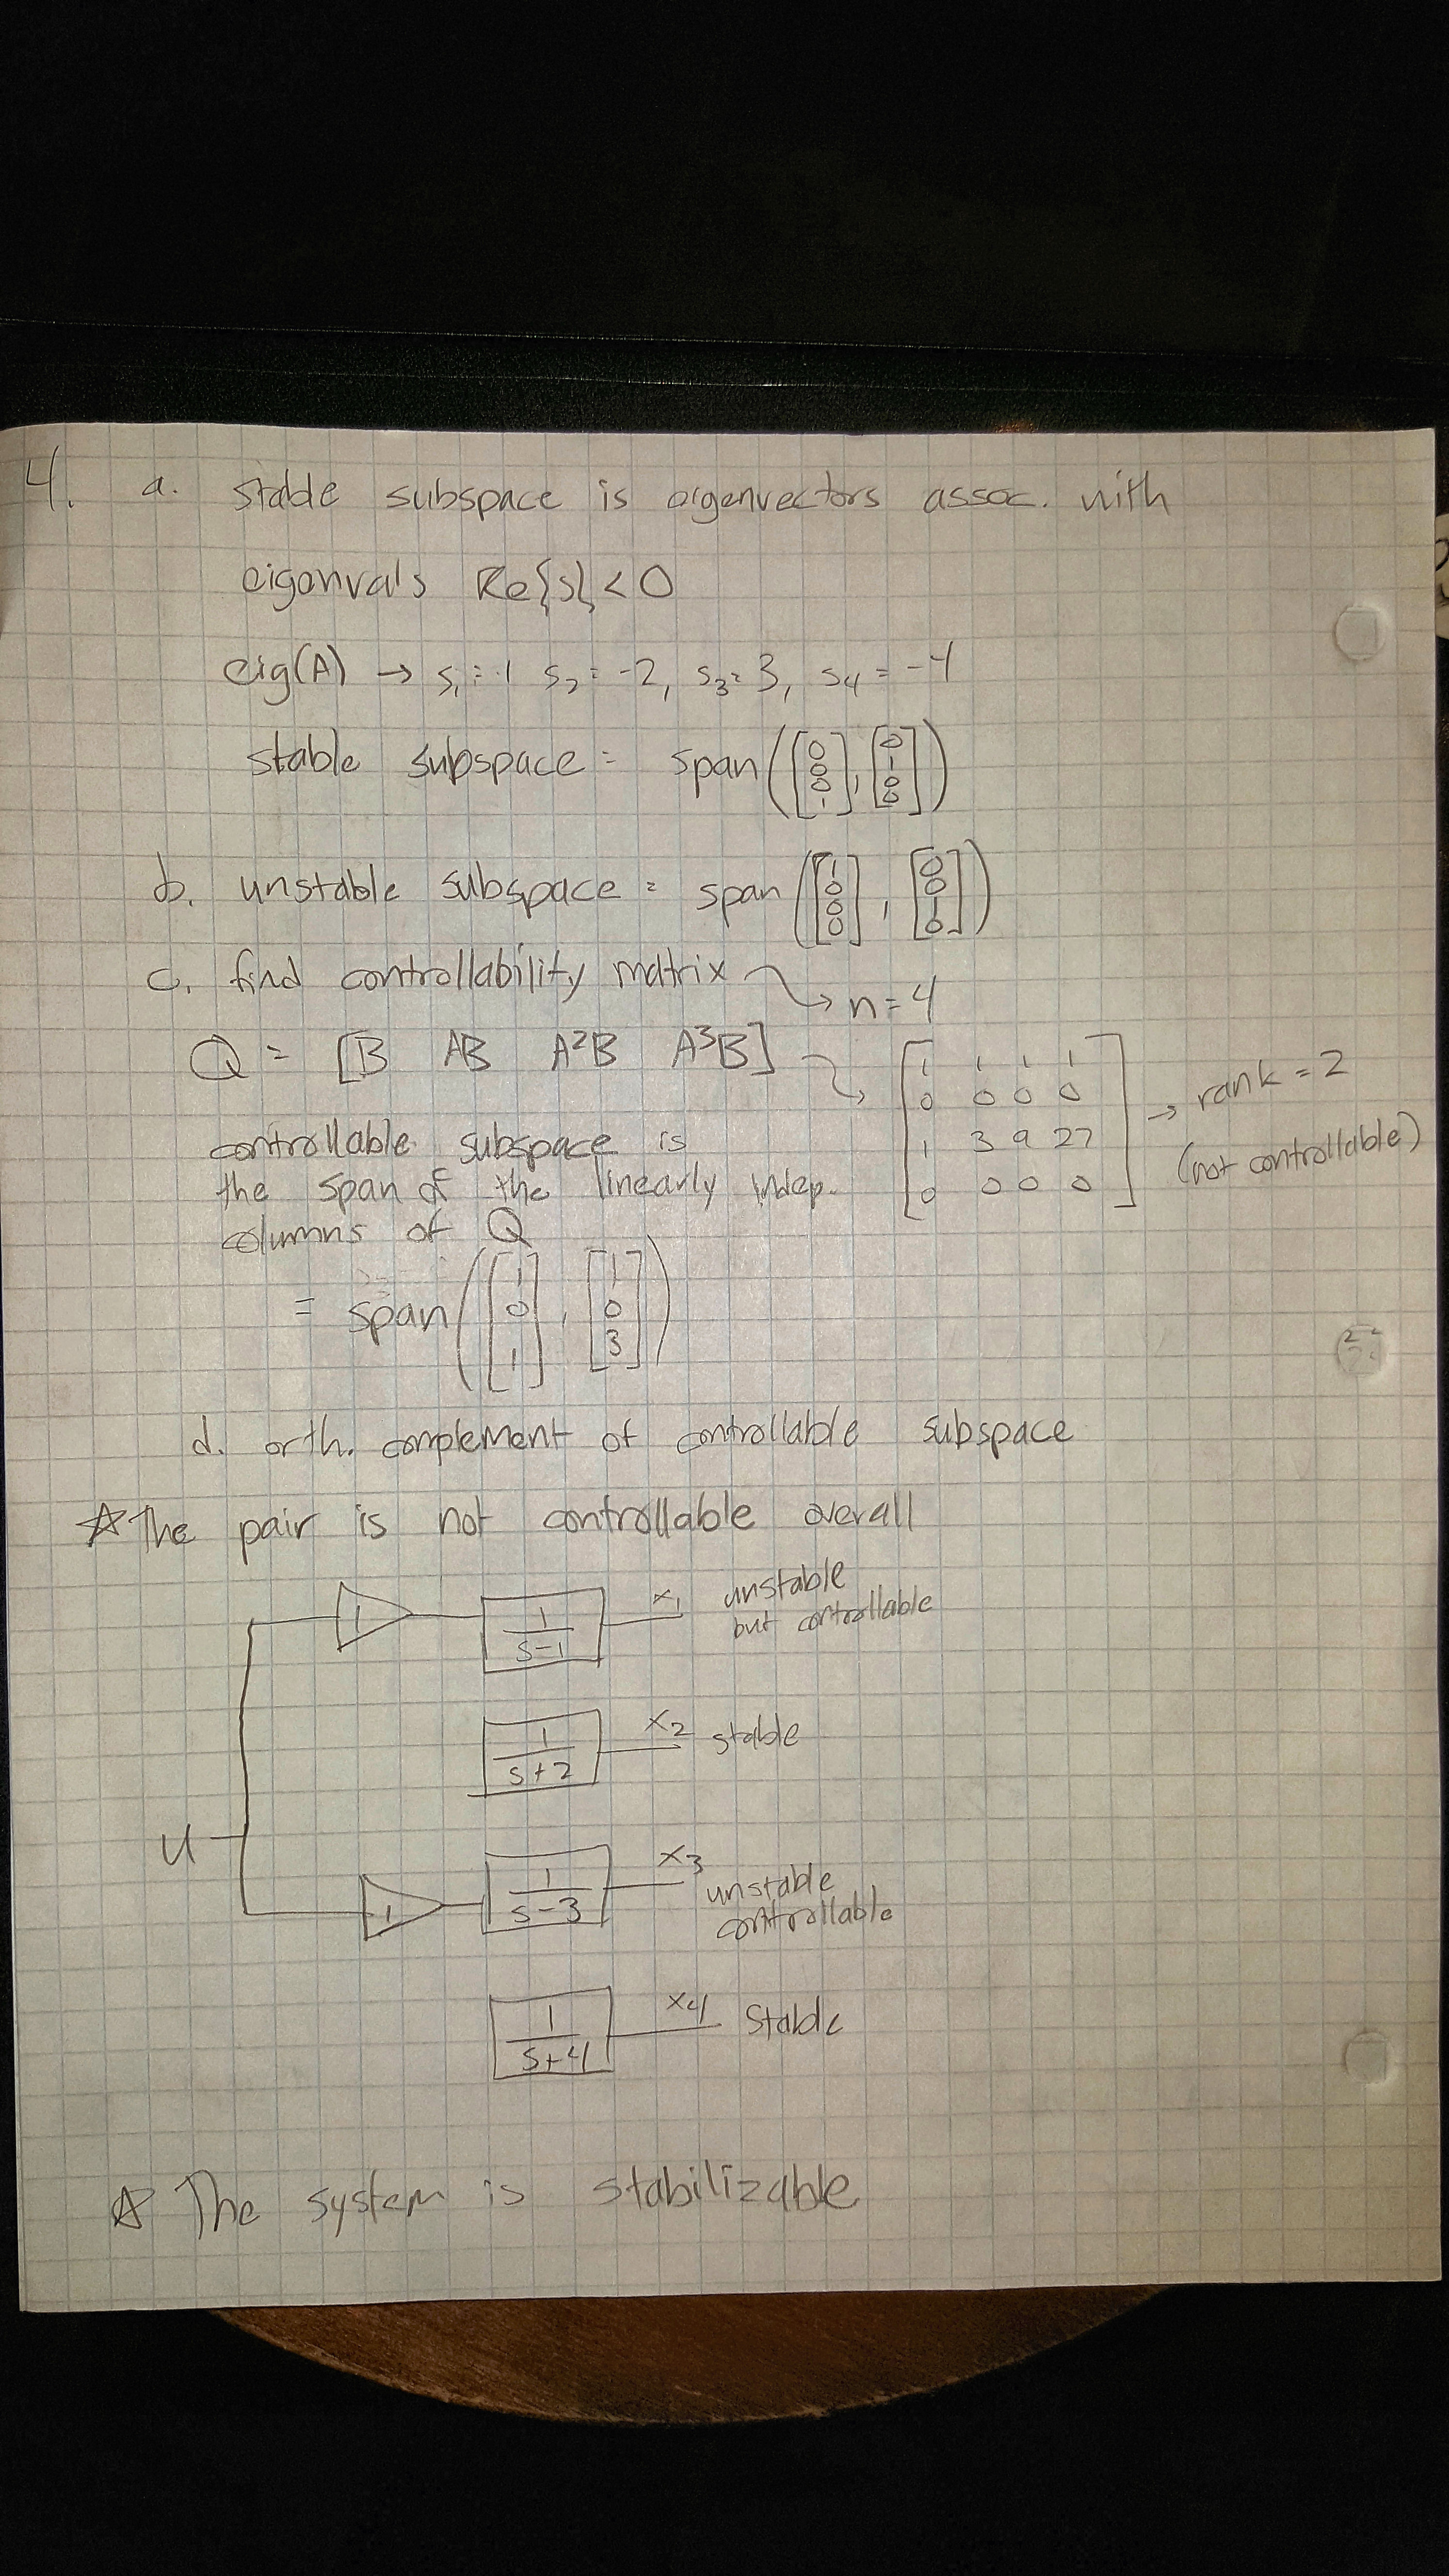 4. a. stable subspace is eigenvectors assoc. with
eigenvals Re{s} < 0
eig(A) → s₁ = 1 s₂ = -2, s₃ = 3, s4 = -4
stable subspace = span([0 0 0 1], [0 1 0 0])
b. unstable subspace = span([1 0 0 0], [0 0 1 0])
c. find controllability matrix → n = 4
Q = [B AB A²B A³B] → [1 1 1 1
0 0 0 0
1 3 9 27
0 0 0 0] → rank = 2
(not controllable)
controllable subspace is
the span of the linearly indep.
columns of Q
= span([1 0 1], [1 0 3])
d. orth. complement of controllable subspace
☆ The pair is not controllable overall
u
1 1/s-1 x₁ unstable
but controllable
1/s+2 x₂ stable
1 1/s-3 x3 unstable
controllable
1/s+4 x4 stable
☆ The system is stabilizable